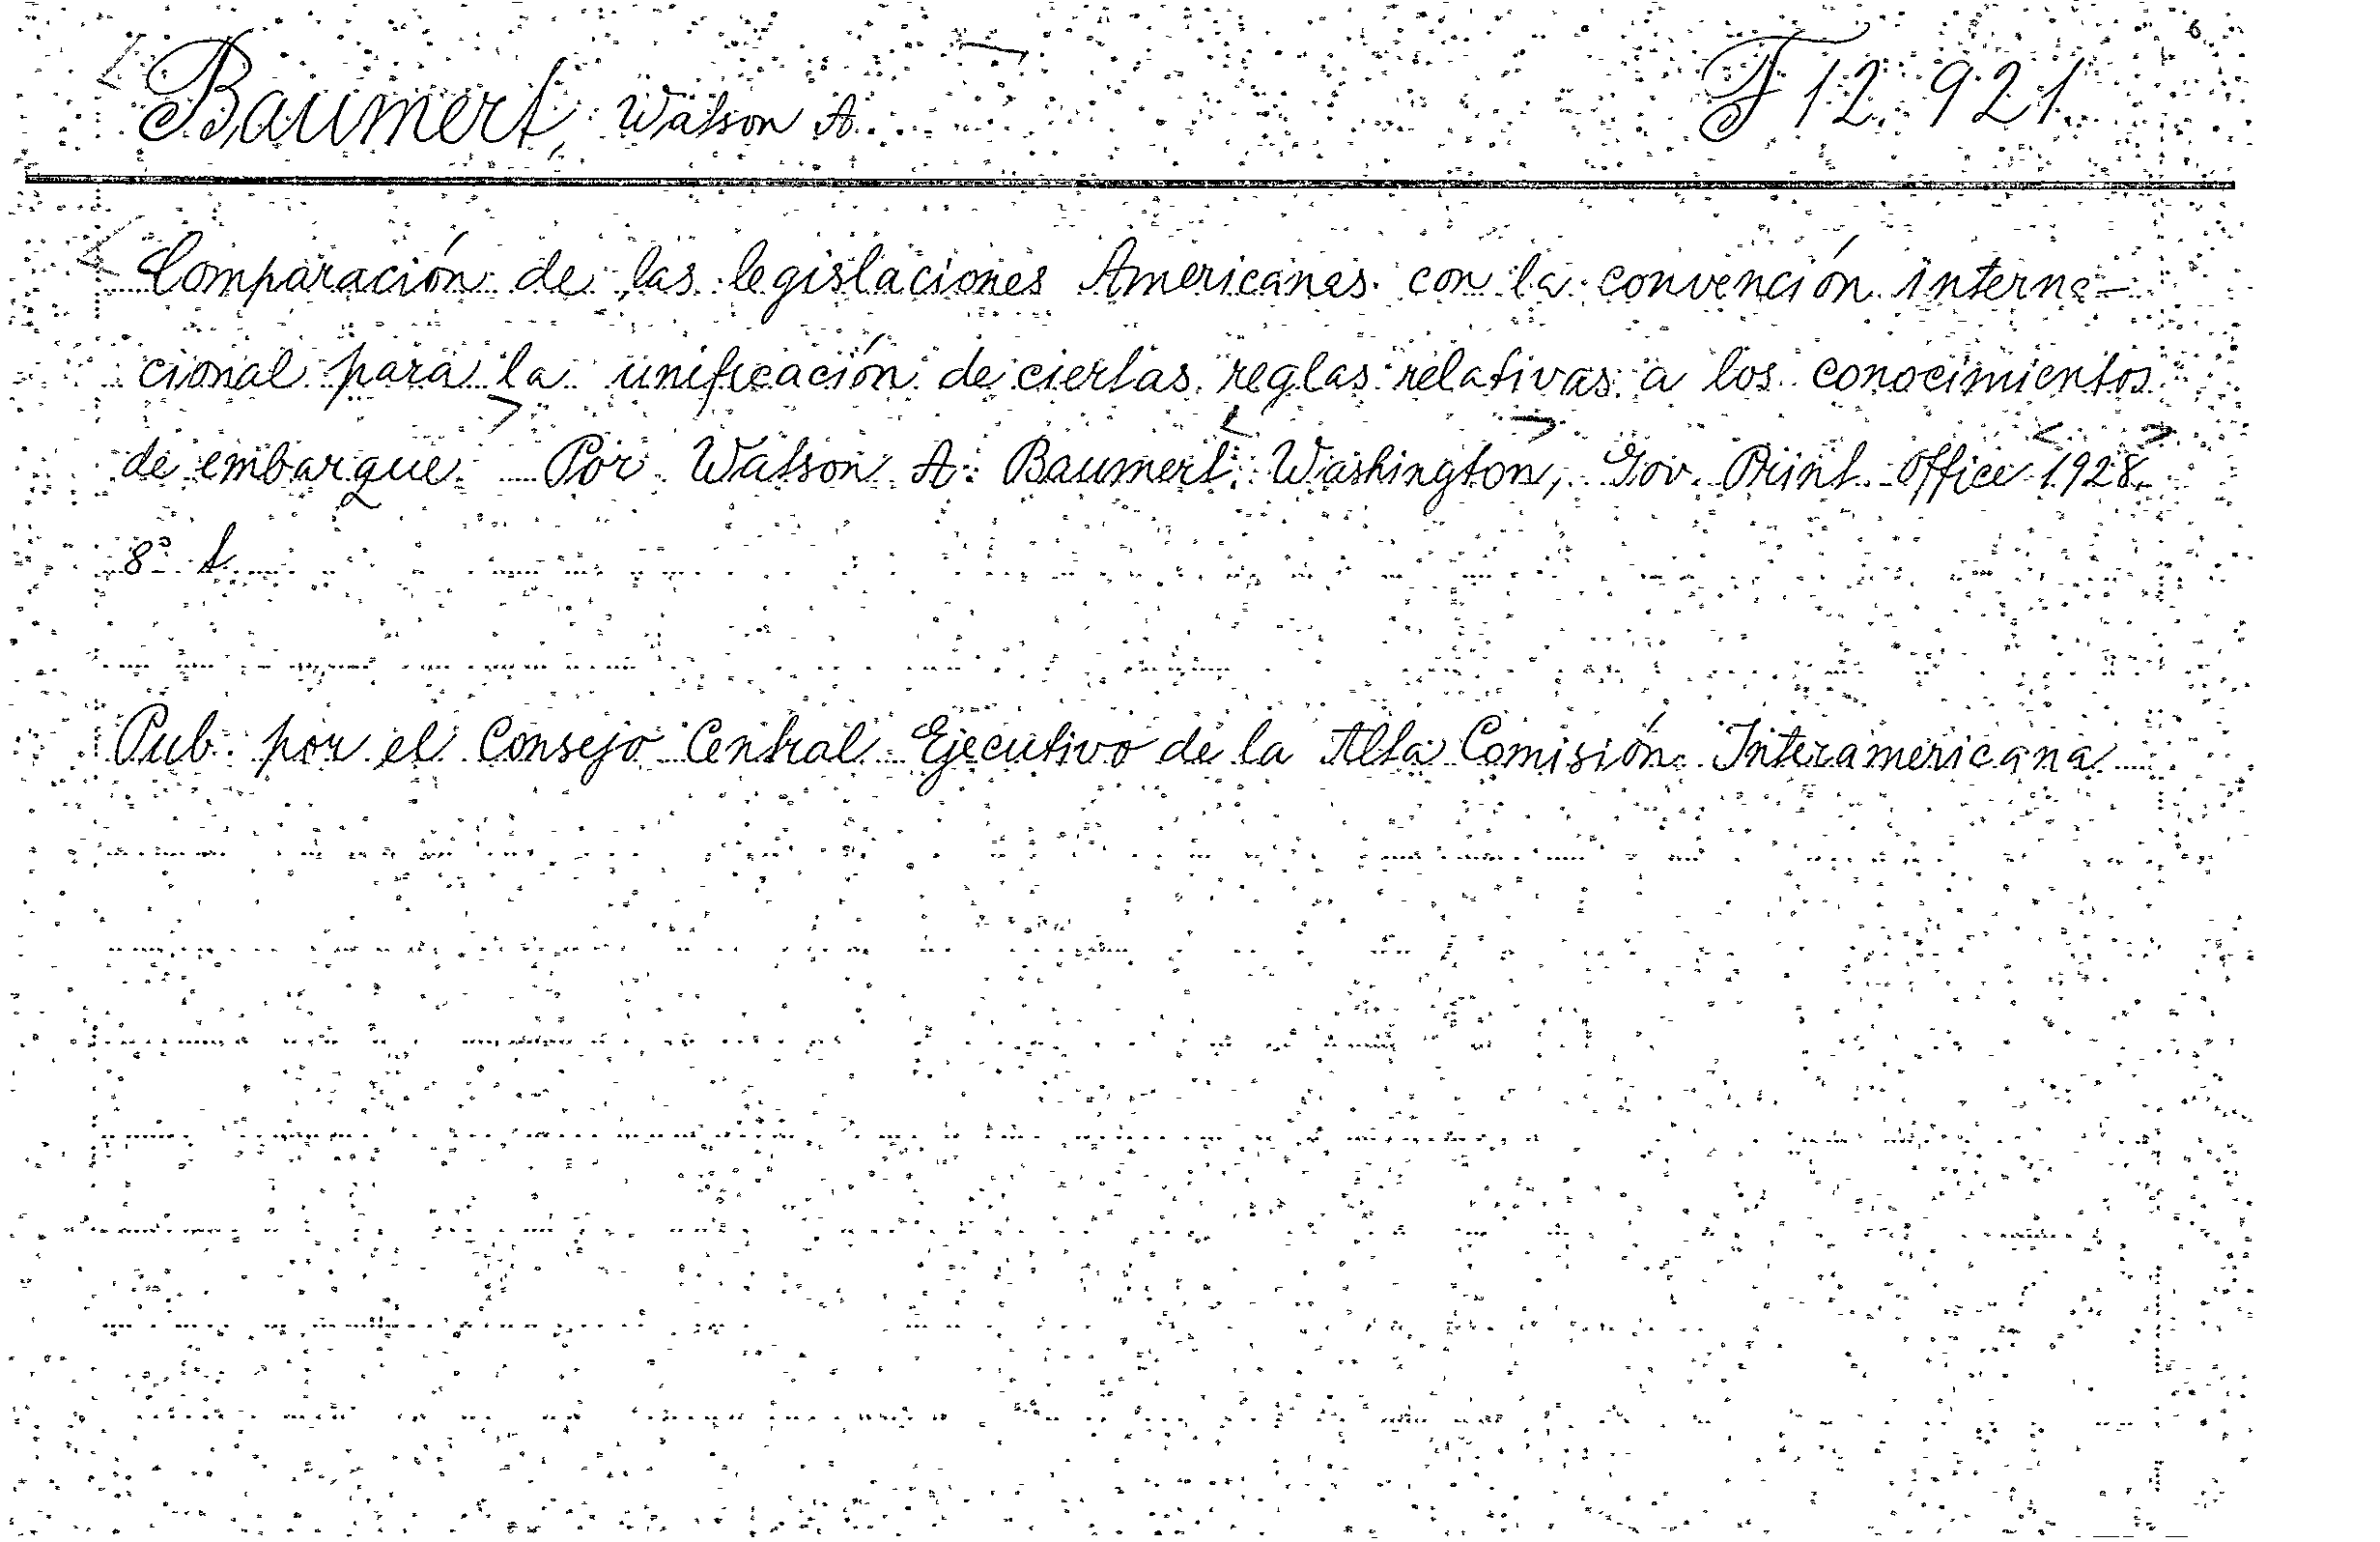 Baumert, Watson A. F 12.921.
Comparación de las legislaciones Americanas con la convención interna-
cional para la unificación de ciertas reglas relativas a los conocimientos
de embarque. Por Watson A. Baumert. Washington, Gov. Print. Office 1928.
8º t.
Pub. por el Consejo Central Ejecutivo de la Alta Comisión Interamericana